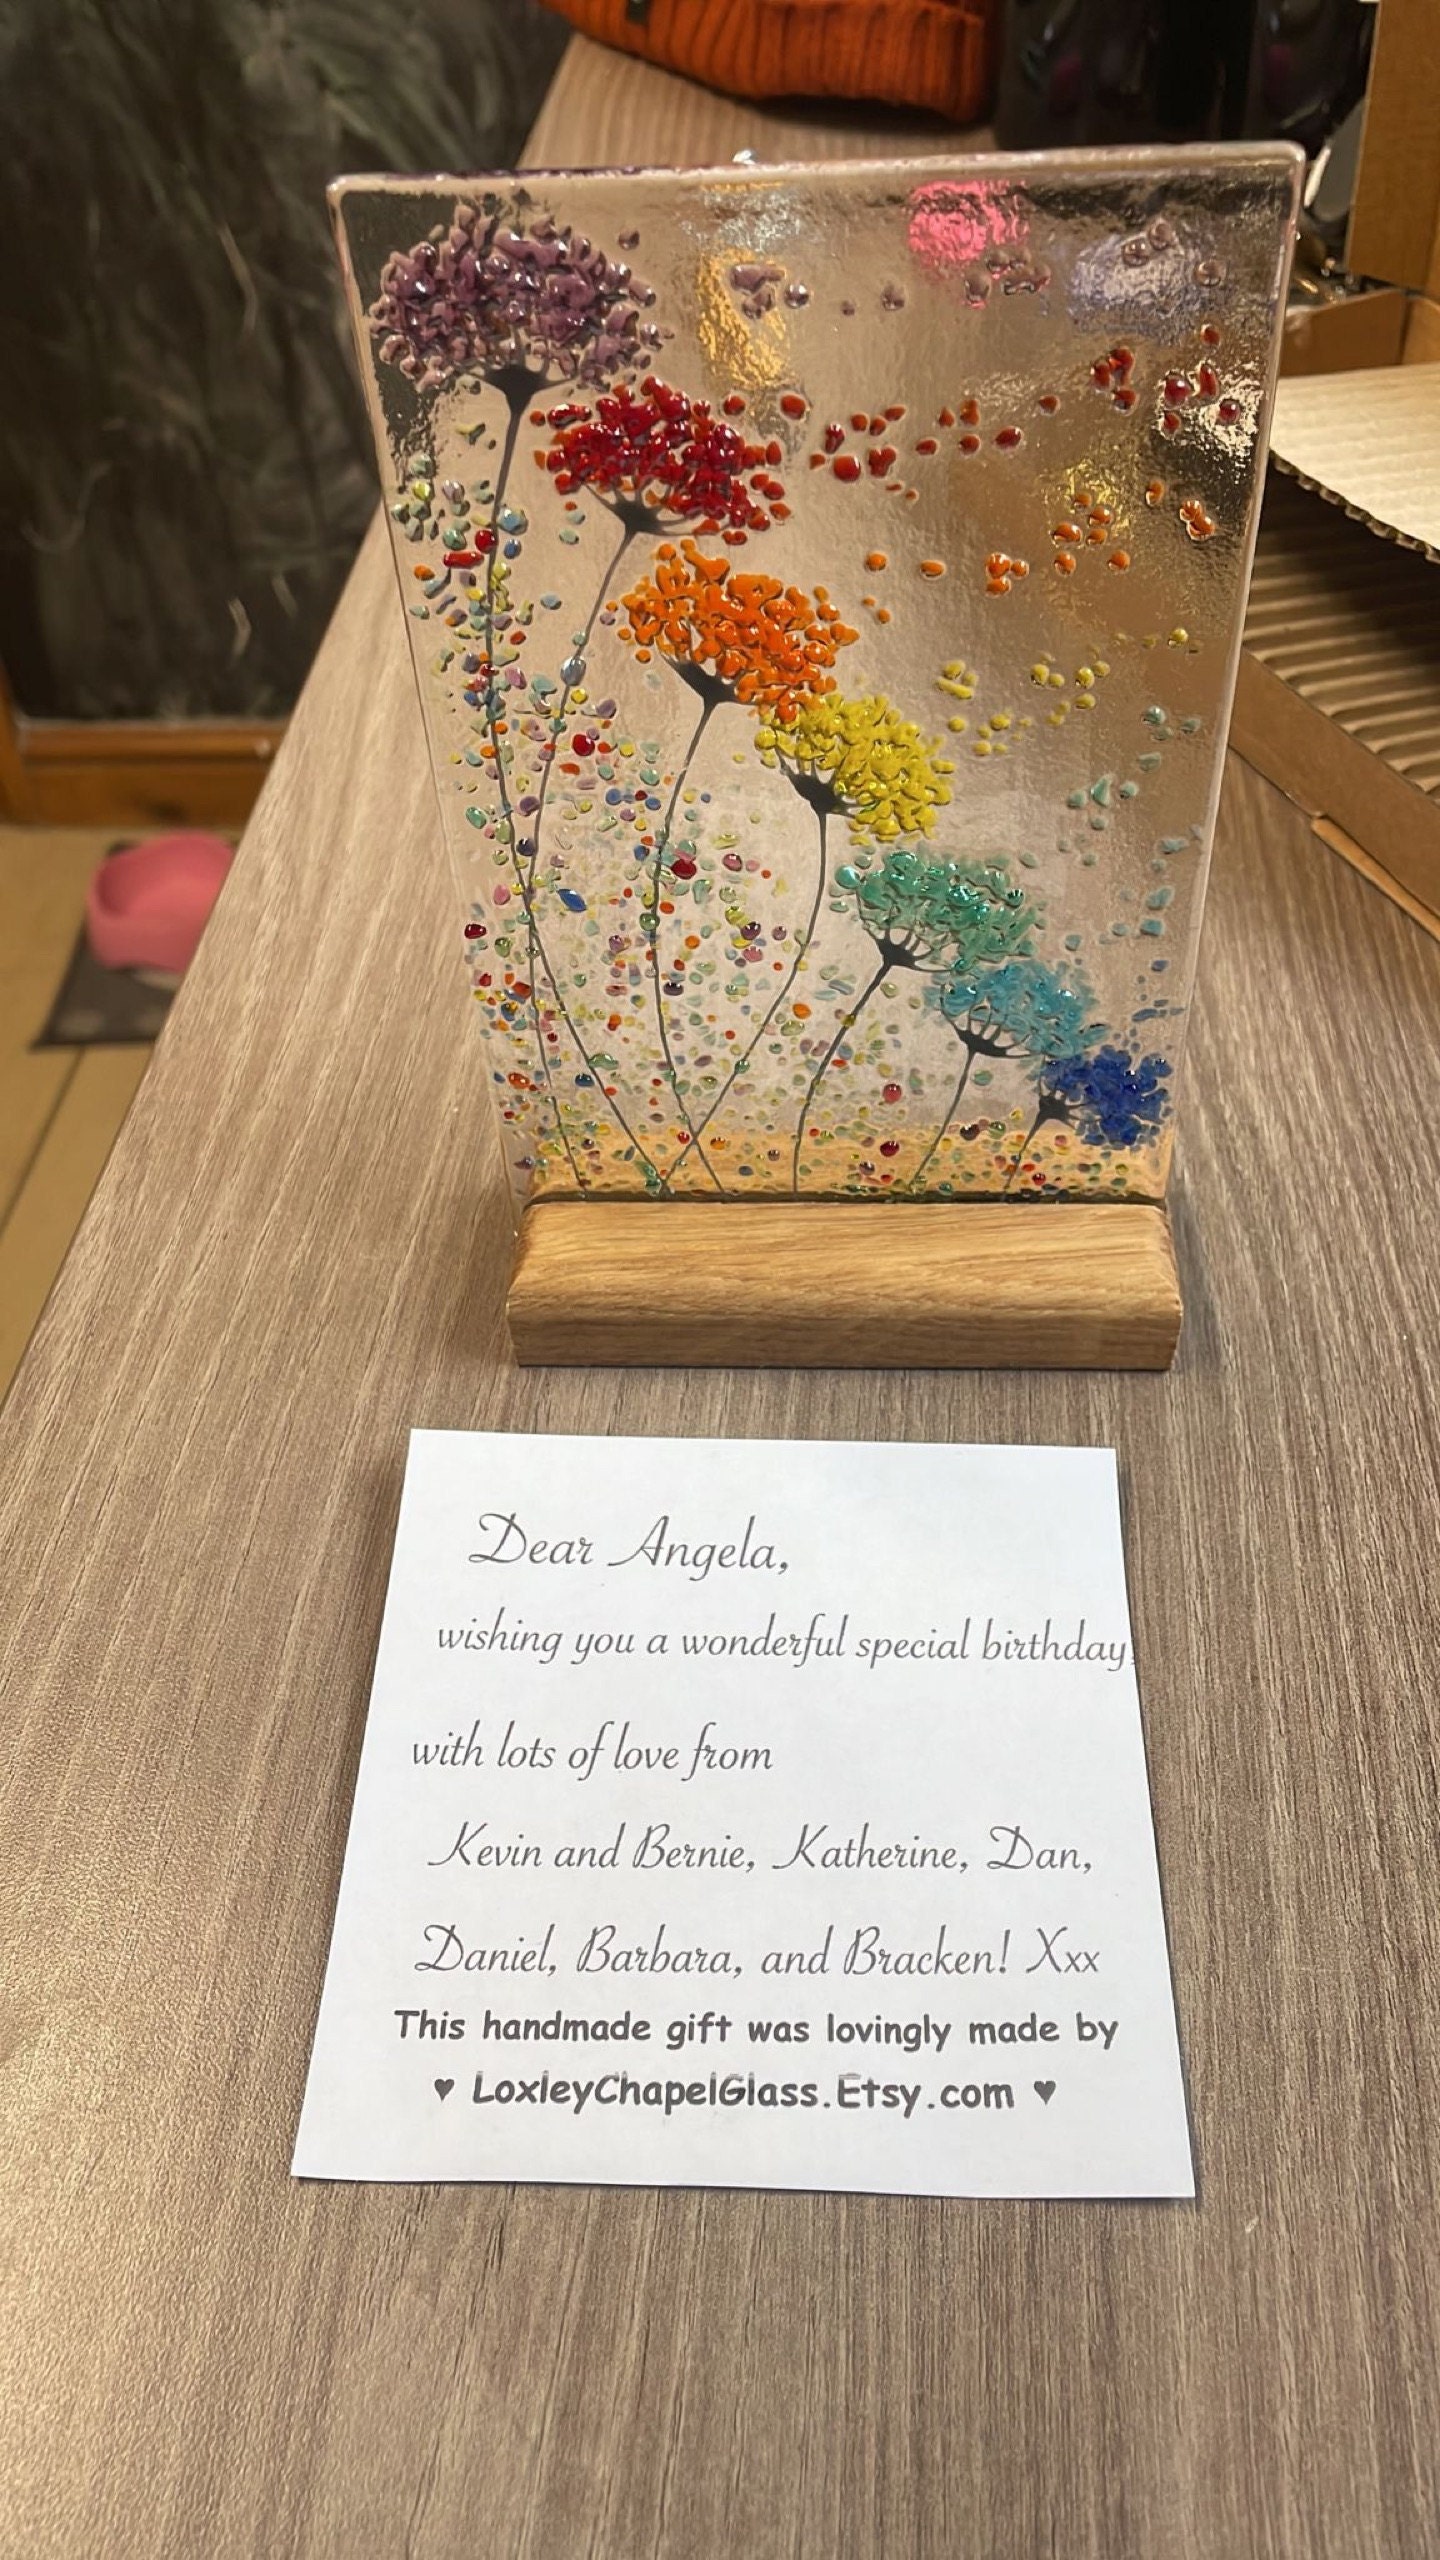 Dear Angela,
wishing you a wonderful special birthday!
with lots of love from
Kevin and Bernie, Katherine, Dan,
Daniel, Barbara, and Bracken! Xxx
This handmade gift was lovingly made by
♥ LoxleyChapelGlass.Etsy.com ♥